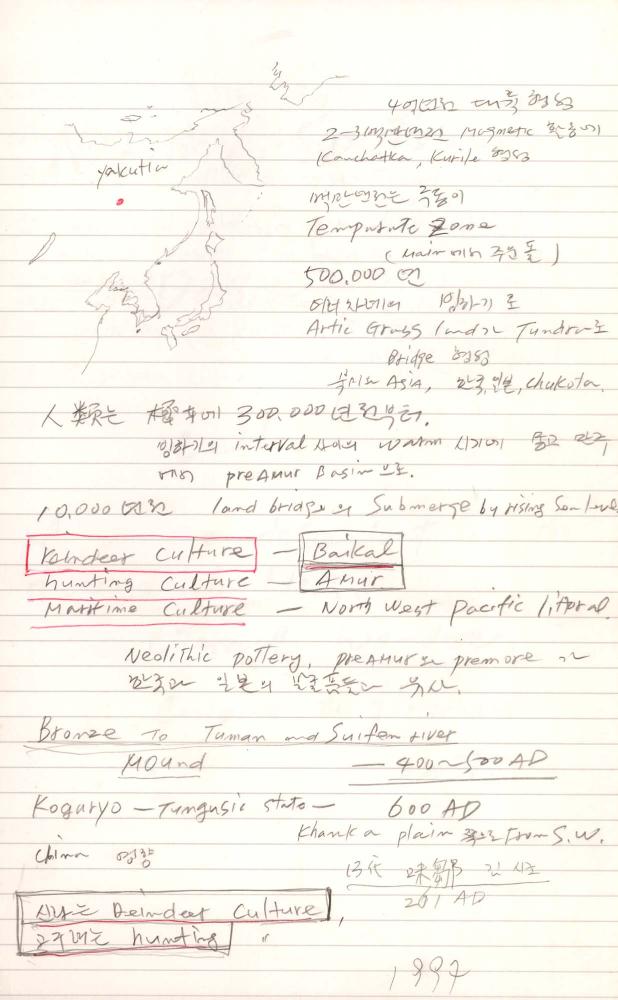 4억년전 대륙 형성
2-3백만년전 Magmatic 활동에
Kamchatka, Kurile 형성
yakutia
백만년전는 극동이
Temparate Zone
500.000 년
빙하기로
Artic Grass land가 Tundra로
Bridge 형성
ASIA, 한국, 일본, chukota.
人類는 極東에 300.000년전부터.
빙하기의 interval 사이의 warm 시기에 몽고 만주
에서 preAmur Basin으로.
10,000년전 land bridge의 Submerge by rising Sea level
reindeer culture — Baikal
hunting Culture — AMUR
Maritime Culture — North West pacific litoral.
Neolithic pottery, preAMUR와 premore가
한국과 일본의 발굴품들과 유사.
Bronze To Tuman and Suifen river
Mound — 400~500 AD
Koguryo — Tungusic state — 600 AD
Khanka plain 쪽으로 from S.W.
China 영향
13代 味鄒 김 시조
261 AD
신라는 Reindeer Culture,
고구려는 hunting "
1997